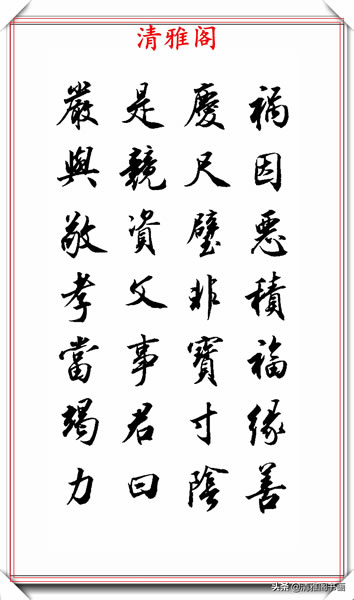 清雅阁
禍因惡積福緣善
慶尺璧非寶寸陰
是競資父事君曰
嚴與敬孝當竭力
头条@清雅阁书画